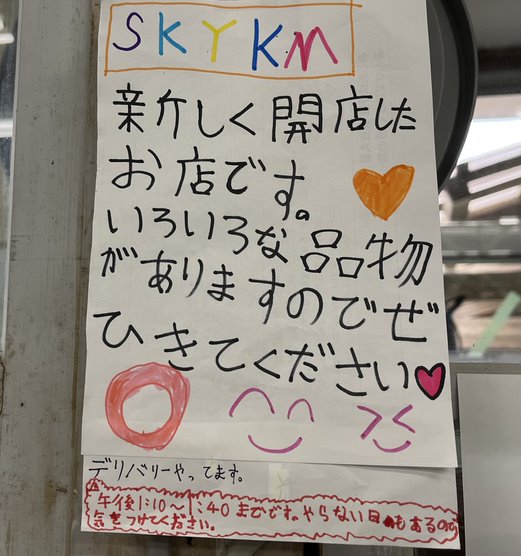 SKYKM
新しく開店した
お店です。
いろいろな品物
がありますのでぜ
ひきてください
デリバリーやってます。
午後1:10～1:40までです。やらない日もあるので
気をつけてください。